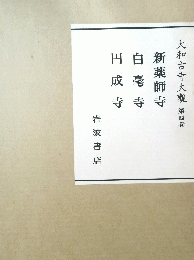 大和古寺大観 第四巻
新薬師寺
白毫寺
円成寺
岩波書店